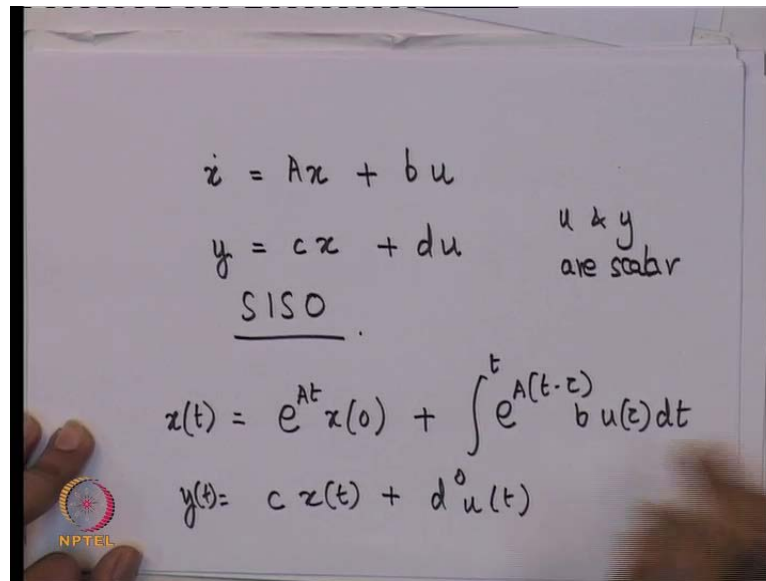 ẋ = Ax + bu
y = cx + du
u & y
are scalar
SISO.
x(t) = e^{At} x(0) + ∫^t e^{A(t-τ)} b u(τ) dt
y(t) = c x(t) + d^0 u(t)
NPTEL